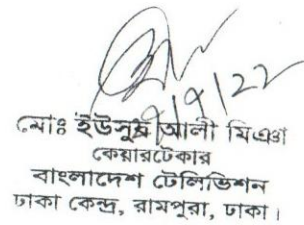 ৭/৭/২২
মোঃ ইউনুছ আলী মিঞা
কেয়ারটেকার
বাংলাদেশ টেলিভিশন
ঢাকা কেন্দ্র, রামপুরা, ঢাকা।